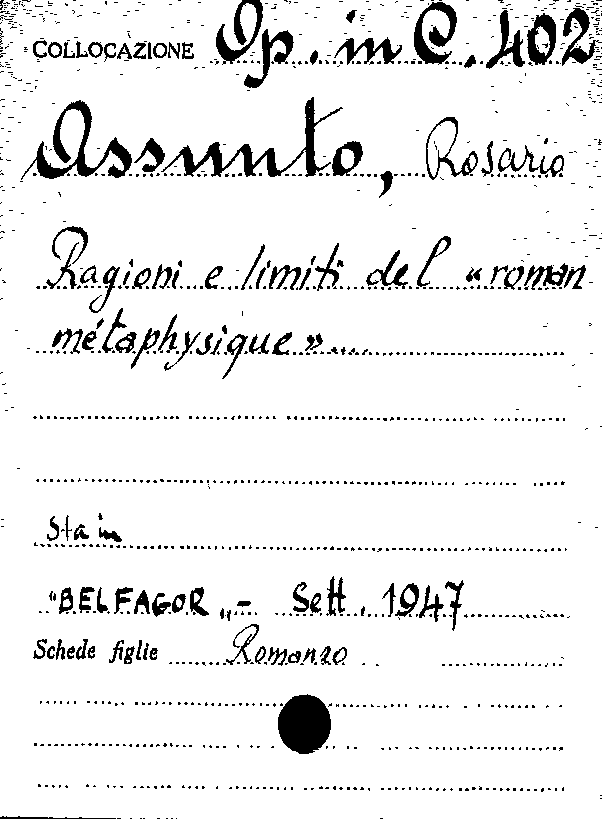 COLLOCAZIONE Op. in C. 402
Assunto, Rosario
Ragioni e limiti del «roman
métaphysique»....
Sta in
"BELFAGOR„- Sett. 1947
Schede figlie Romanzo